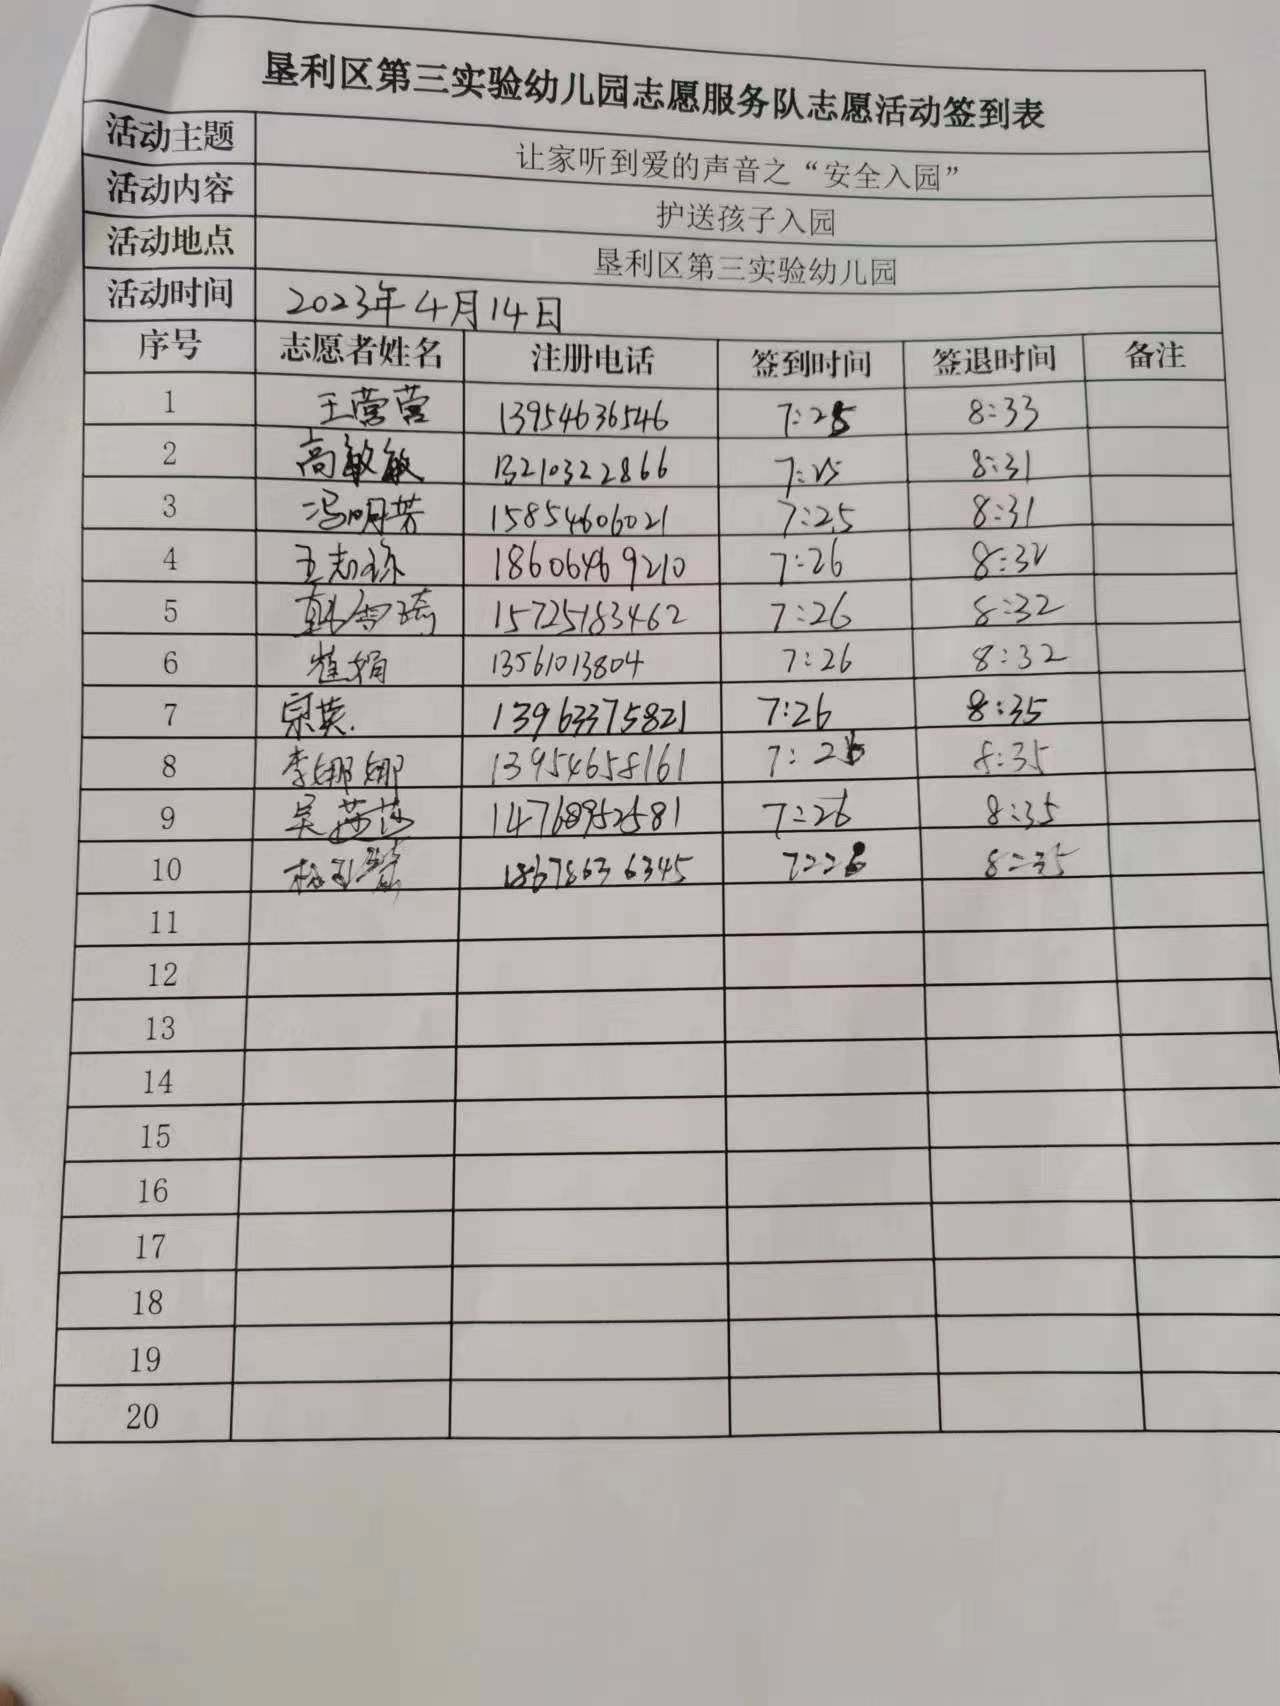 垦利区第三实验幼儿园志愿服务队志愿活动签到表
活动主题 让家听到爱的声音之“安全入园”
活动内容 护送孩子入园
活动地点 垦利区第三实验幼儿园
活动时间 2023年4月14日
序号 志愿者姓名 注册电话 签到时间 签退时间 备注
1 王营营 13954636546 7:25 8:33
2 高敏敏 13210322866 7:25 8:31
3 冯明芳 15854606021 7:25 8:31
4 18606469210 7:26 8:32
5 15725183462 7:26 8:32
6 崔娟 13561013804 7:26 8:32
7 宗英 13963375821 7:26 8:35
8 李娜娜 13954658161 7:26 8:35
9 14768952581 7:26 8:35
10 18678636345 7:26 8:35
11
12
13
14
15
16
17
18
19
20